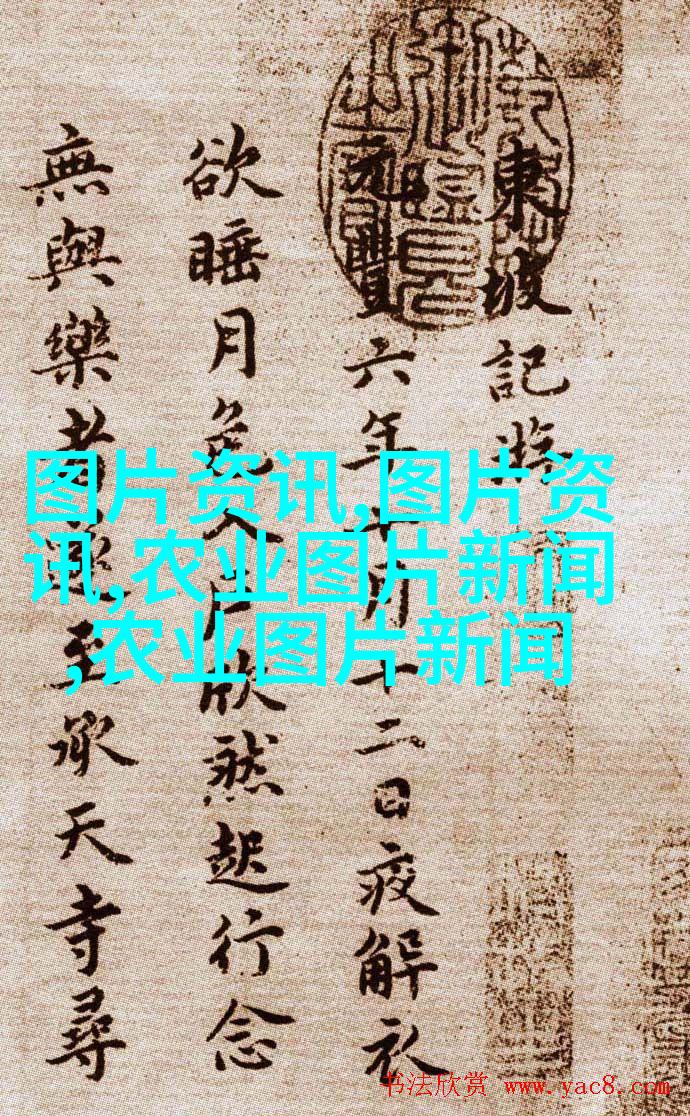 東坡記遊
元豐六年十月十二日夜解衣
欲睡月色入戶欣然起行念
無與樂者遂至承天寺尋
图片资讯,图片资
讯,农业图片新闻
,农业图片新闻
书法欣赏 www.yac8.com